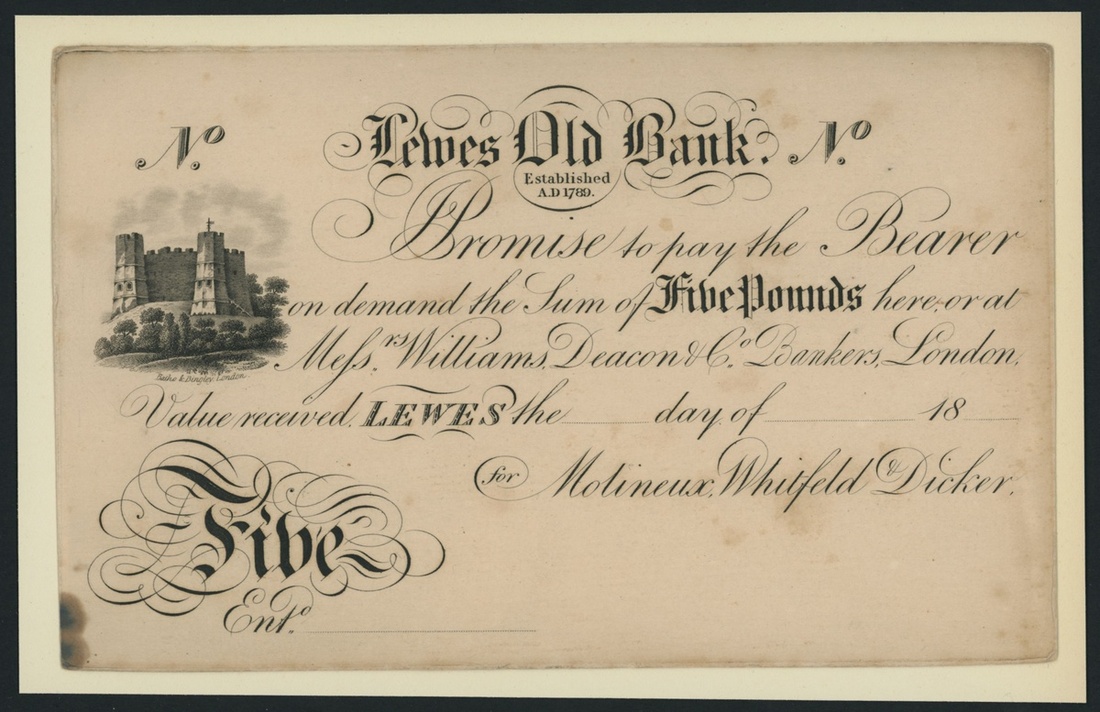 No. Lewes Old Bank. No.
Established
A.D 1789.
I Promise to pay the Bearer
on demand the Sum of Five Pounds here, or at
Messrs. Williams, Deacon & Co. Bankers, London.
Batho & Bingley, London.
Value received. LEWES the day of 18
for Molineux, Whitfeld & Dicker.
Five
Entd.